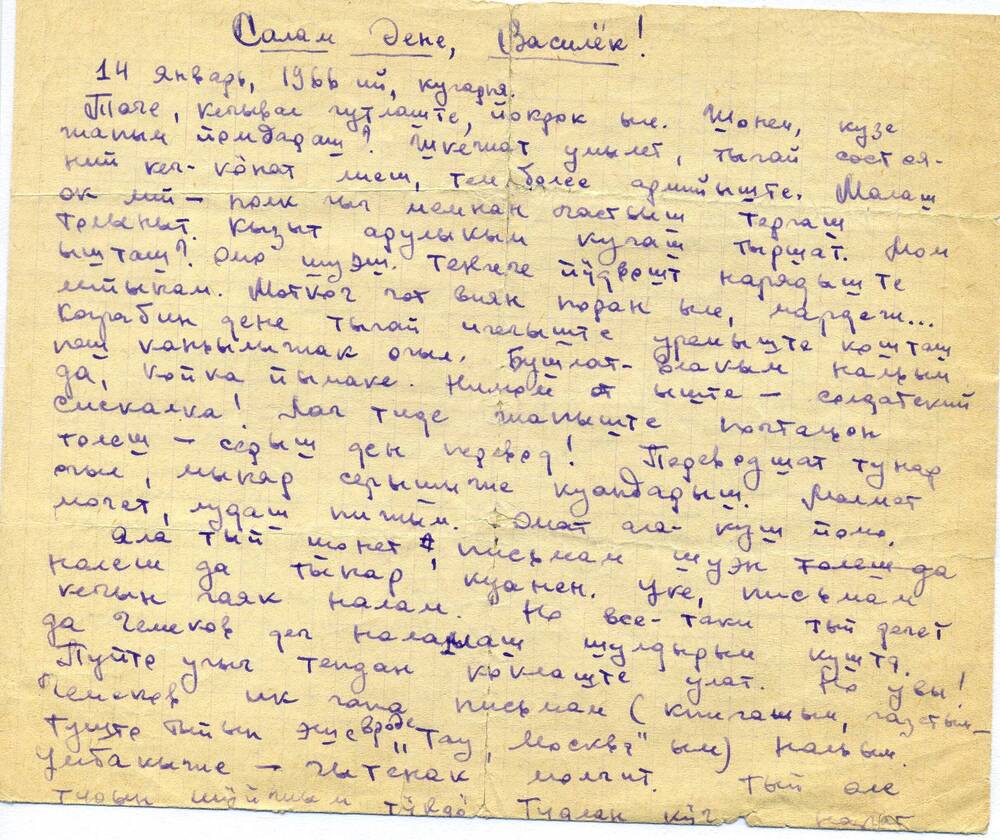 Салам дене, Василёк!
14 январь, 1966 ий, кугарня.
Таче, кечывал гутлаште, йокрок ыле. Шонем, кузе
жапым йомдараш? Шкежат умылет, тыгай состоя-
ний кеч-кӧнат лиеш, тем более армийыште. Малаш
ок лий – полк гыч мемнан частьыш тергаш
толыныт. Кызыт арулыкым кучаш тыршат. Мом
ышташ? Эмо шуэш. Теҥгече йӱдвошт нарядыште
лийынам. Моткоч чот виян поран ыле, мардеж...
Карабин дене тыгай игечыште уремыште кошташ
пеш каньылыжак огыл. Бушлат-влакым нальым
да, койка йымаке. Нимом от ыште – солдатский
смекалка! Лач тиде жапыште почтальон
толеш – серыш ден перевод! Переводшат тунар
огыл, мыняр серышыже куандарыш. Малмат
мондет, лудаш пижым. Эмат ала-куш йомо.
Ала тый шонет, письмам шуэн да
налеш да тыняр куанен. Уке, письмам
кечын гаяк налам. Но все-таки тый дечет
да Чемеков деч налмаш шулдырым кушта.
Пуйто угыч тендан коклаште улат. Но увы!
Чемеков ик гана письмам (книгашым, газетым,
тушто битын эше вроде „Тау, Москва" ым) нальым.
Умбакыже – гытенак молчит. Тый але